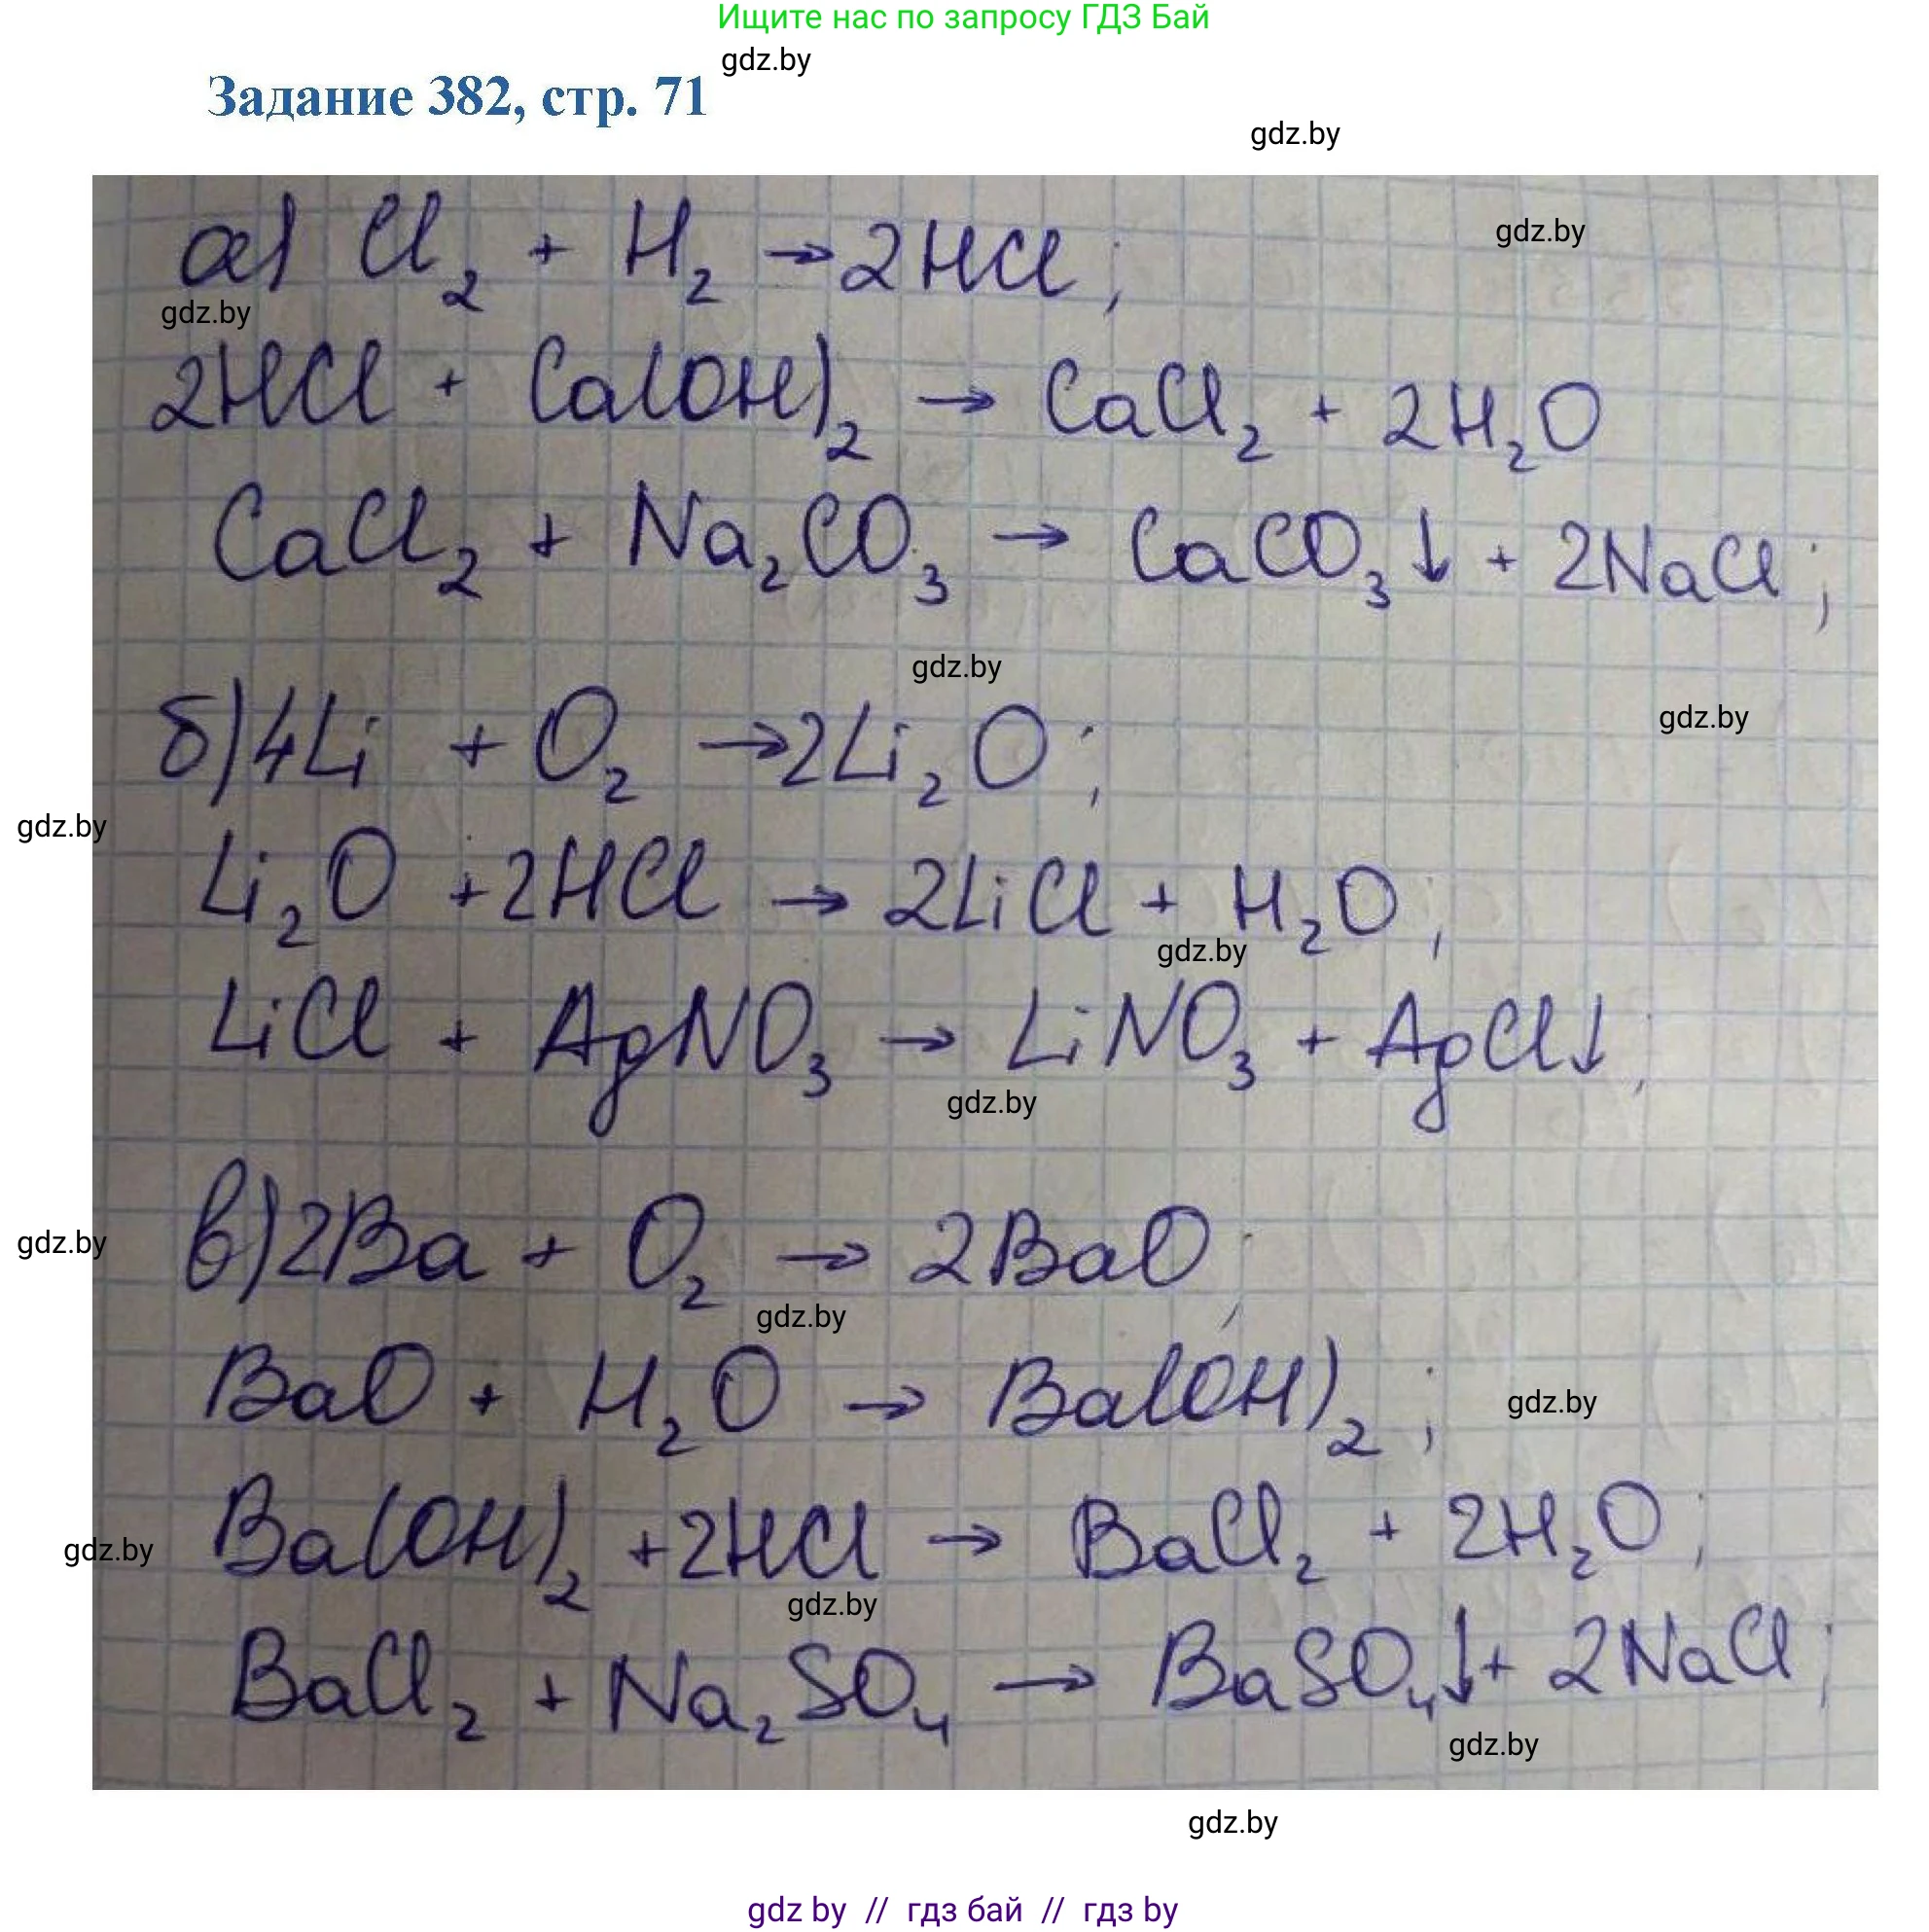 Ищите нас по запросу ГДЗ Бай
gdz.by
Задание 382, стр. 71
gdz.by
а) Cl₂ + H₂ → 2HCl;
gdz.by
gdz.by
2HCl + Ca(OH)₂ → CaCl₂ + 2H₂O
CaCl₂ + Na₂CO₃ → CaCO₃↓ + 2NaCl;
gdz.by
gdz.by
б) 4Li + O₂ → 2Li₂O;
gdz.by
Li₂O + 2HCl → 2LiCl + H₂O;
gdz.by
LiCl + AgNO₃ → LiNO₃ + AgCl↓;
gdz.by
в) 2Ba + O₂ → 2BaO;
gdz.by
gdz.by
BaO + H₂O → Ba(OH)₂;
gdz.by
Ba(OH)₂ + 2HCl → BaCl₂ + 2H₂O;
gdz.by
gdz.by
BaCl₂ + Na₂SO₄ → BaSO₄↓ + 2NaCl;
gdz.by
gdz.by
gdz by // гдз бай // гдз by